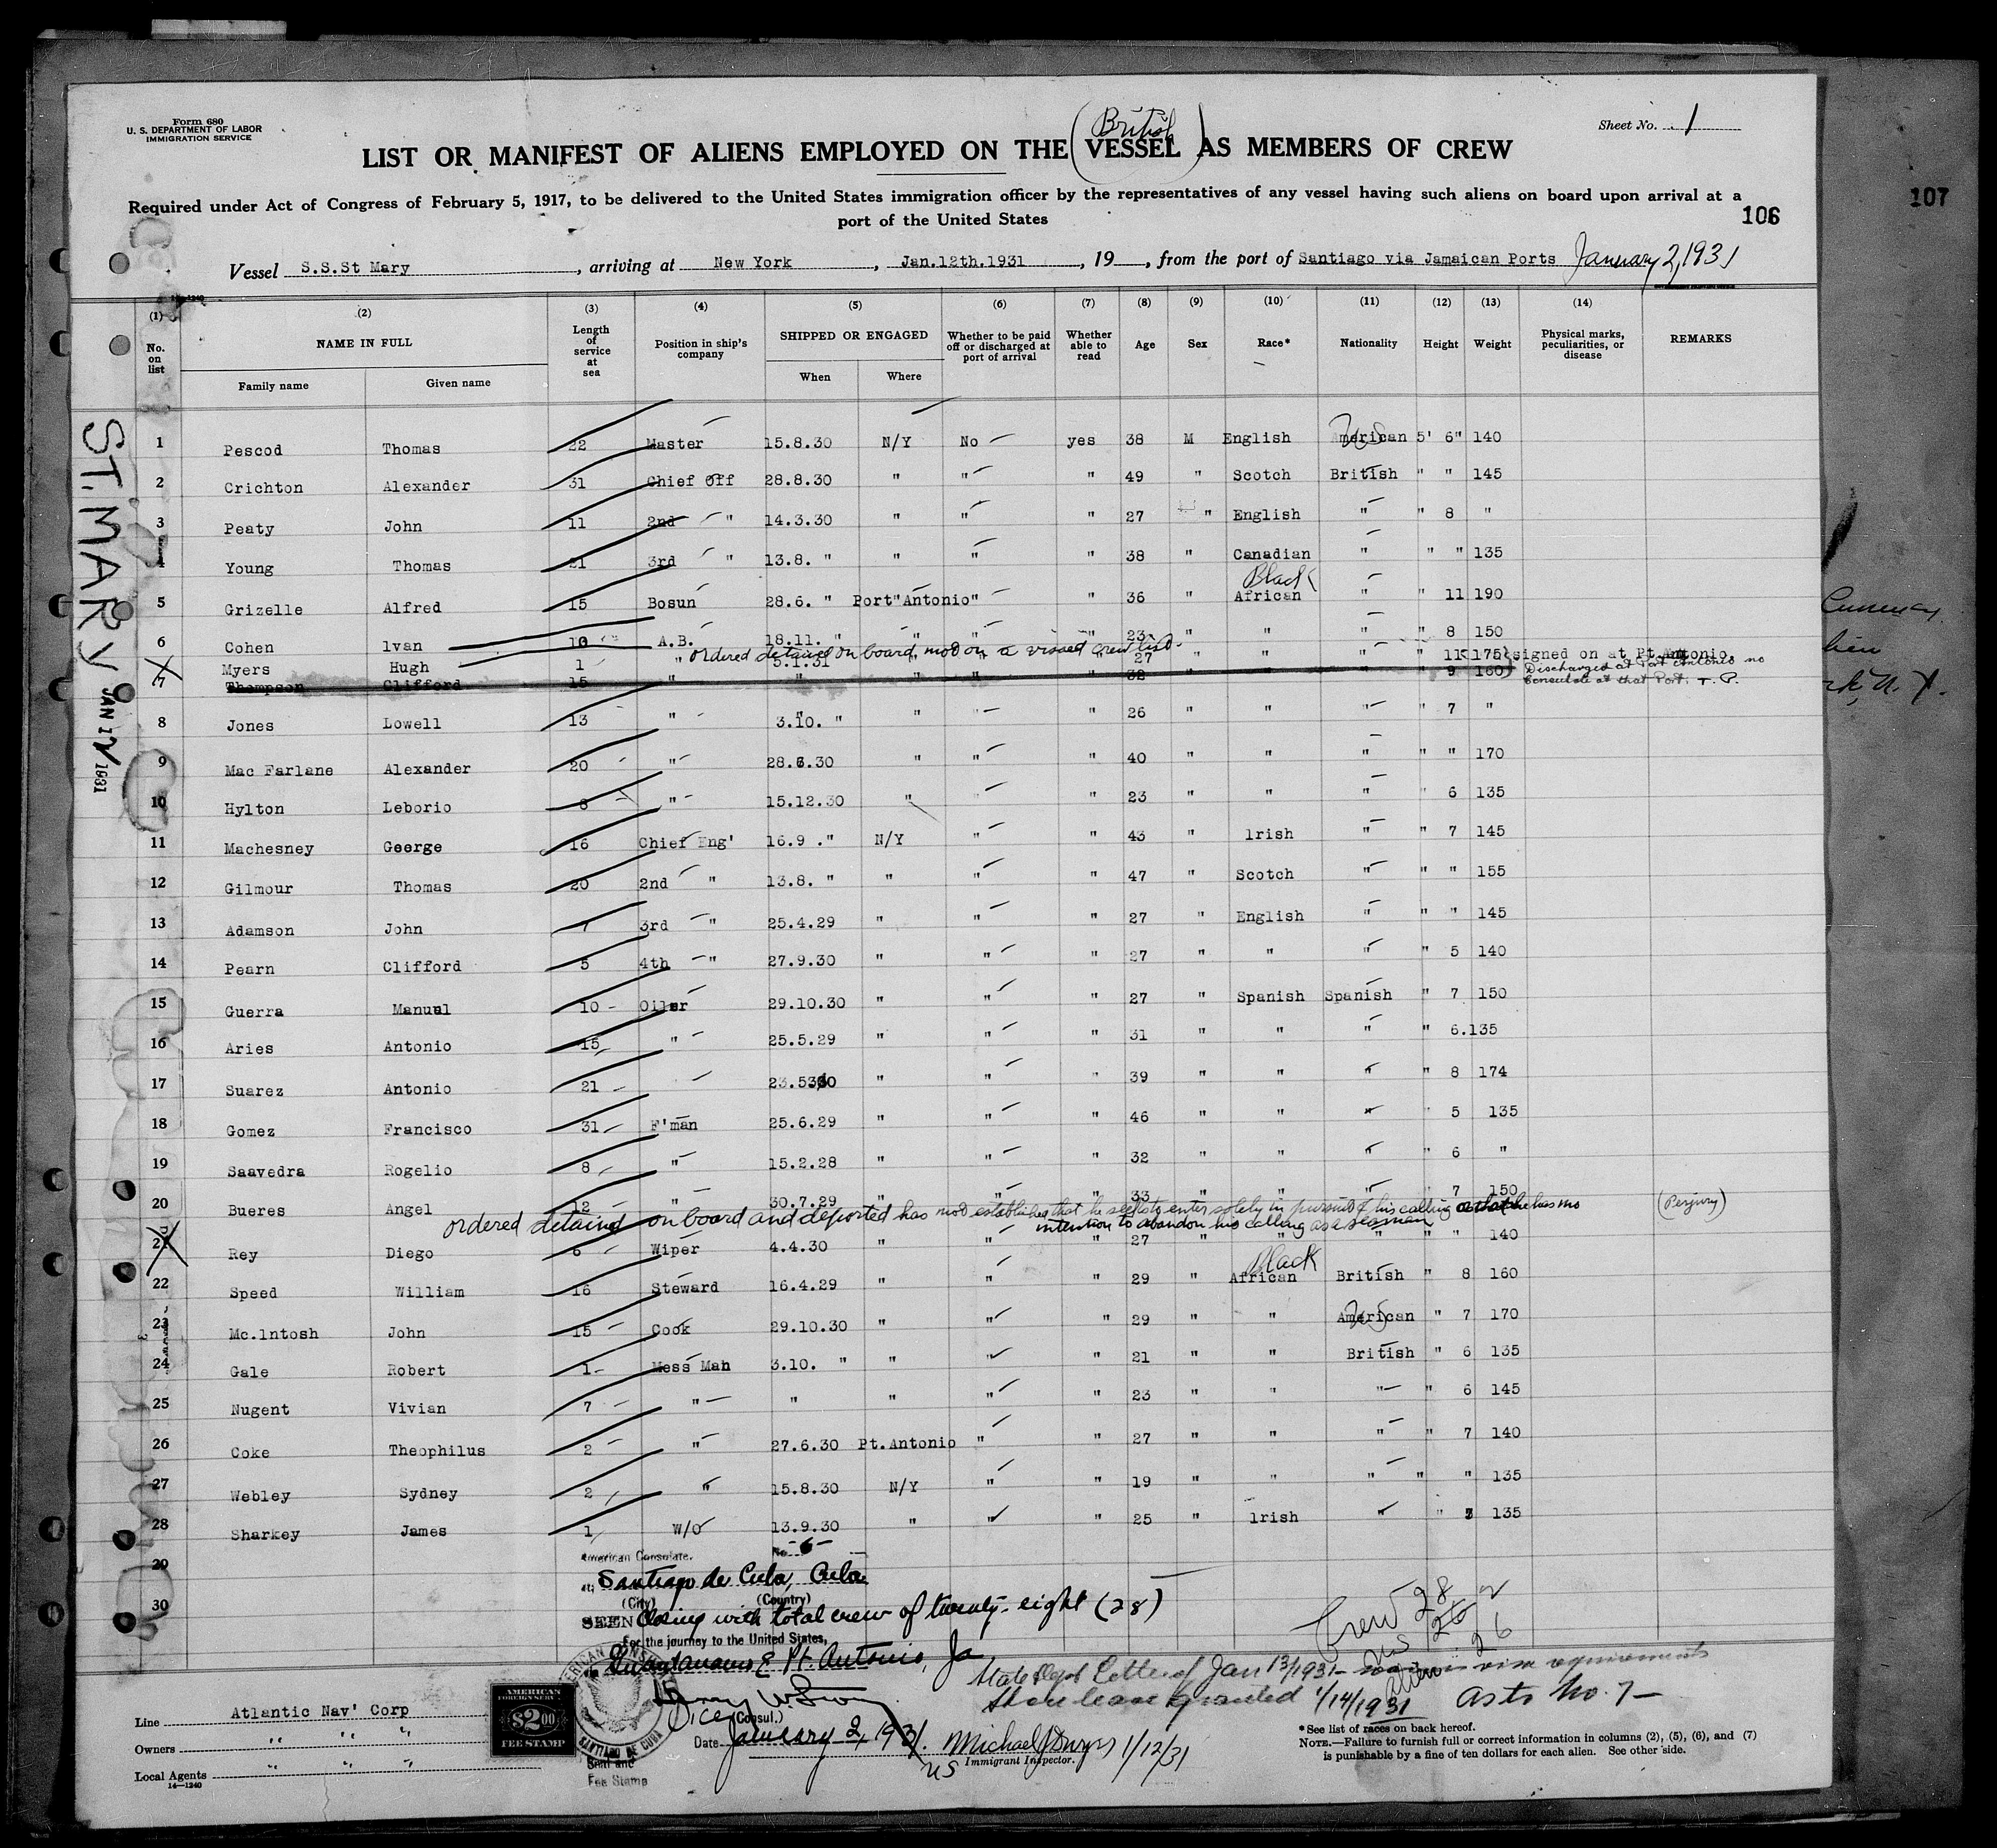 Form 680
U. S. DEPARTMENT OF LABOR
IMMIGRATION SERVICE
Sheet No. 1
British
LIST OR MANIFEST OF ALIENS EMPLOYED ON THE VESSEL AS MEMBERS OF CREW
Required under Act of Congress of February 5, 1917, to be delivered to the United States immigration officer by the representatives of any vessel having such aliens on board upon arrival at a
port of the United States
106
107
Vessel S.S.St Mary, arriving at New York, Jan.12th.1931, 19, from the port of Santiago via Jamaican Ports January 2, 1931
(1) (2) (3) (4) (5) (6) (7) (8) (9) (10) (11) (12) (13) (14)
No. on list NAME IN FULL Length of service at sea Position in ship's company SHIPPED OR ENGAGED Whether to be paid off or discharged at port of arrival Whether able to read Age Sex Race* Nationality Height Weight Physical marks, peculiarities, or disease REMARKS
Family name Given name When Where
ST. MARY JAN 12 1931
1 Pescod Thomas 22 Master 15.8.30 N/Y No yes 38 M English American US 5' 6" 140
2 Crichton Alexander 31 Chief Off 28.8.30 " " " 49 " Scotch British " " 145
3 Peaty John 11 2nd " 14.3.30 " " " 27 " English " " 8 "
4 Young Thomas 21 3rd " 13.8. " " " " 38 " Canadian " " " 135
Black
5 Grizelle Alfred 15 Bosun 28.6. " Port"Antonio" " 36 " African " " 11 190
6 Cohen Ivan 10 A.B. 18.11. " " " " 23 " " " " 8 150
ordered detained on board, not on a visaed crew list.
Myers Hugh 1 " 5.1.31 " " " 27 " " " " 11 175 signed on at Pt. Antonio
7 Thompson Clifford 15 " " " " " 32 " " " " 9 160 Discharged at Port Antonio no
Consulate at that Port. T. P.
8 Jones Lowell 13 " 3.10. " " " " 26 " " " " 7 "
9 Mac Farlane Alexander 20 " 28.6.30 " " " 40 " " " " " 170
10 Hylton Leborio 8 " 15.12.30 " " " 23 " " " " 6 135
11 Machesney George 16 Chief Eng' 16.9 ." N/Y " " 43 " Irish " " 7 145
12 Gilmour Thomas 20 2nd " 13.8. " " " " 47 " Scotch " " " 155
13 Adamson John 7 3rd " 25.4.29 " " " 27 " English " " " 145
14 Pearn Clifford 5 4th " 27.9.30 " " " 27 " " " " 5 140
15 Guerra Manual 10 Oiler 29.10.30 " " " 27 " Spanish Spanish " 7 150
16 Aries Antonio 15 " 25.5.29 " " " 31 " " " " 6.135
17 Suarez Antonio 21 23.5.30 " " " 39 " " " " 8 174
18 Gomez Francisco 31 F'man 25.6.29 " " " 46 " " " " 5 135
19 Saavedra Rogelio 8 " 15.2.28 " " " 32 " " " " 6 "
20 Bueres Angel 12 " 30.7.29 " " " 33 " " " " 7 150
ordered detained on board and deported has not established that he seeks to enter solely in pursuit of his calling he has no (Perjury)
intention to abandon his calling as a seaman
21 Rey Diego 6 Wiper 4.4.30 " " " 27 " " " " " 140
Black
22 Speed William 16 Steward 16.4.29 " " " 29 " African British " 8 160
23 Mc.lntosh John 15 Cook 29.10.30 " " " 29 " " American US " 7 170
24 Gale Robert 1 Mess Man 3.10. " " " " 21 " " British " 6 135
25 Nugent Vivian 7 " " " " " 23 " " " " 6 145
26 Coke Theophilus 2 " 27.6.30 Pt.Antonio " " 27 " " " " 7 140
27 Webley Sydney 2 " 15.8.30 N/Y " " 19 " " " " " 135
28 Sharkey James 1 W/O 13.9.30 " " " 25 " Irish " " 135
29
30
American Consulate. No. 6
at Santiago de Cuba, Cuba
(City) (Country)
SEEN Closing with total crew of twenty-eight (28)
For the journey to the United States,
via Guantanamo & Pt. Antonio, Ja
Vice (Consul.)
Date January 2, 1931.
Crew 28 2
US 26
Alien 26
State Dept Letter of Jan 13/1931 - visa requirements
Shore leave granted 1/14/1931 as to No. 7 -
1/12/31
US Immigrant Inspector.
AMERICAN
FOREIGN SERVICE
$2.00
FEE STAMP
SANTIAGO DE CUBA
Seal and
Fee Stamp
Line Atlantic Nav' Corp
Owners " " "
Local Agents " " "
14—1240
*See list of races on back hereof.
NOTE.—Failure to furnish full or correct information in columns (2), (5), (6), and (7)
is punishable by a fine of ten dollars for each alien. See other side.